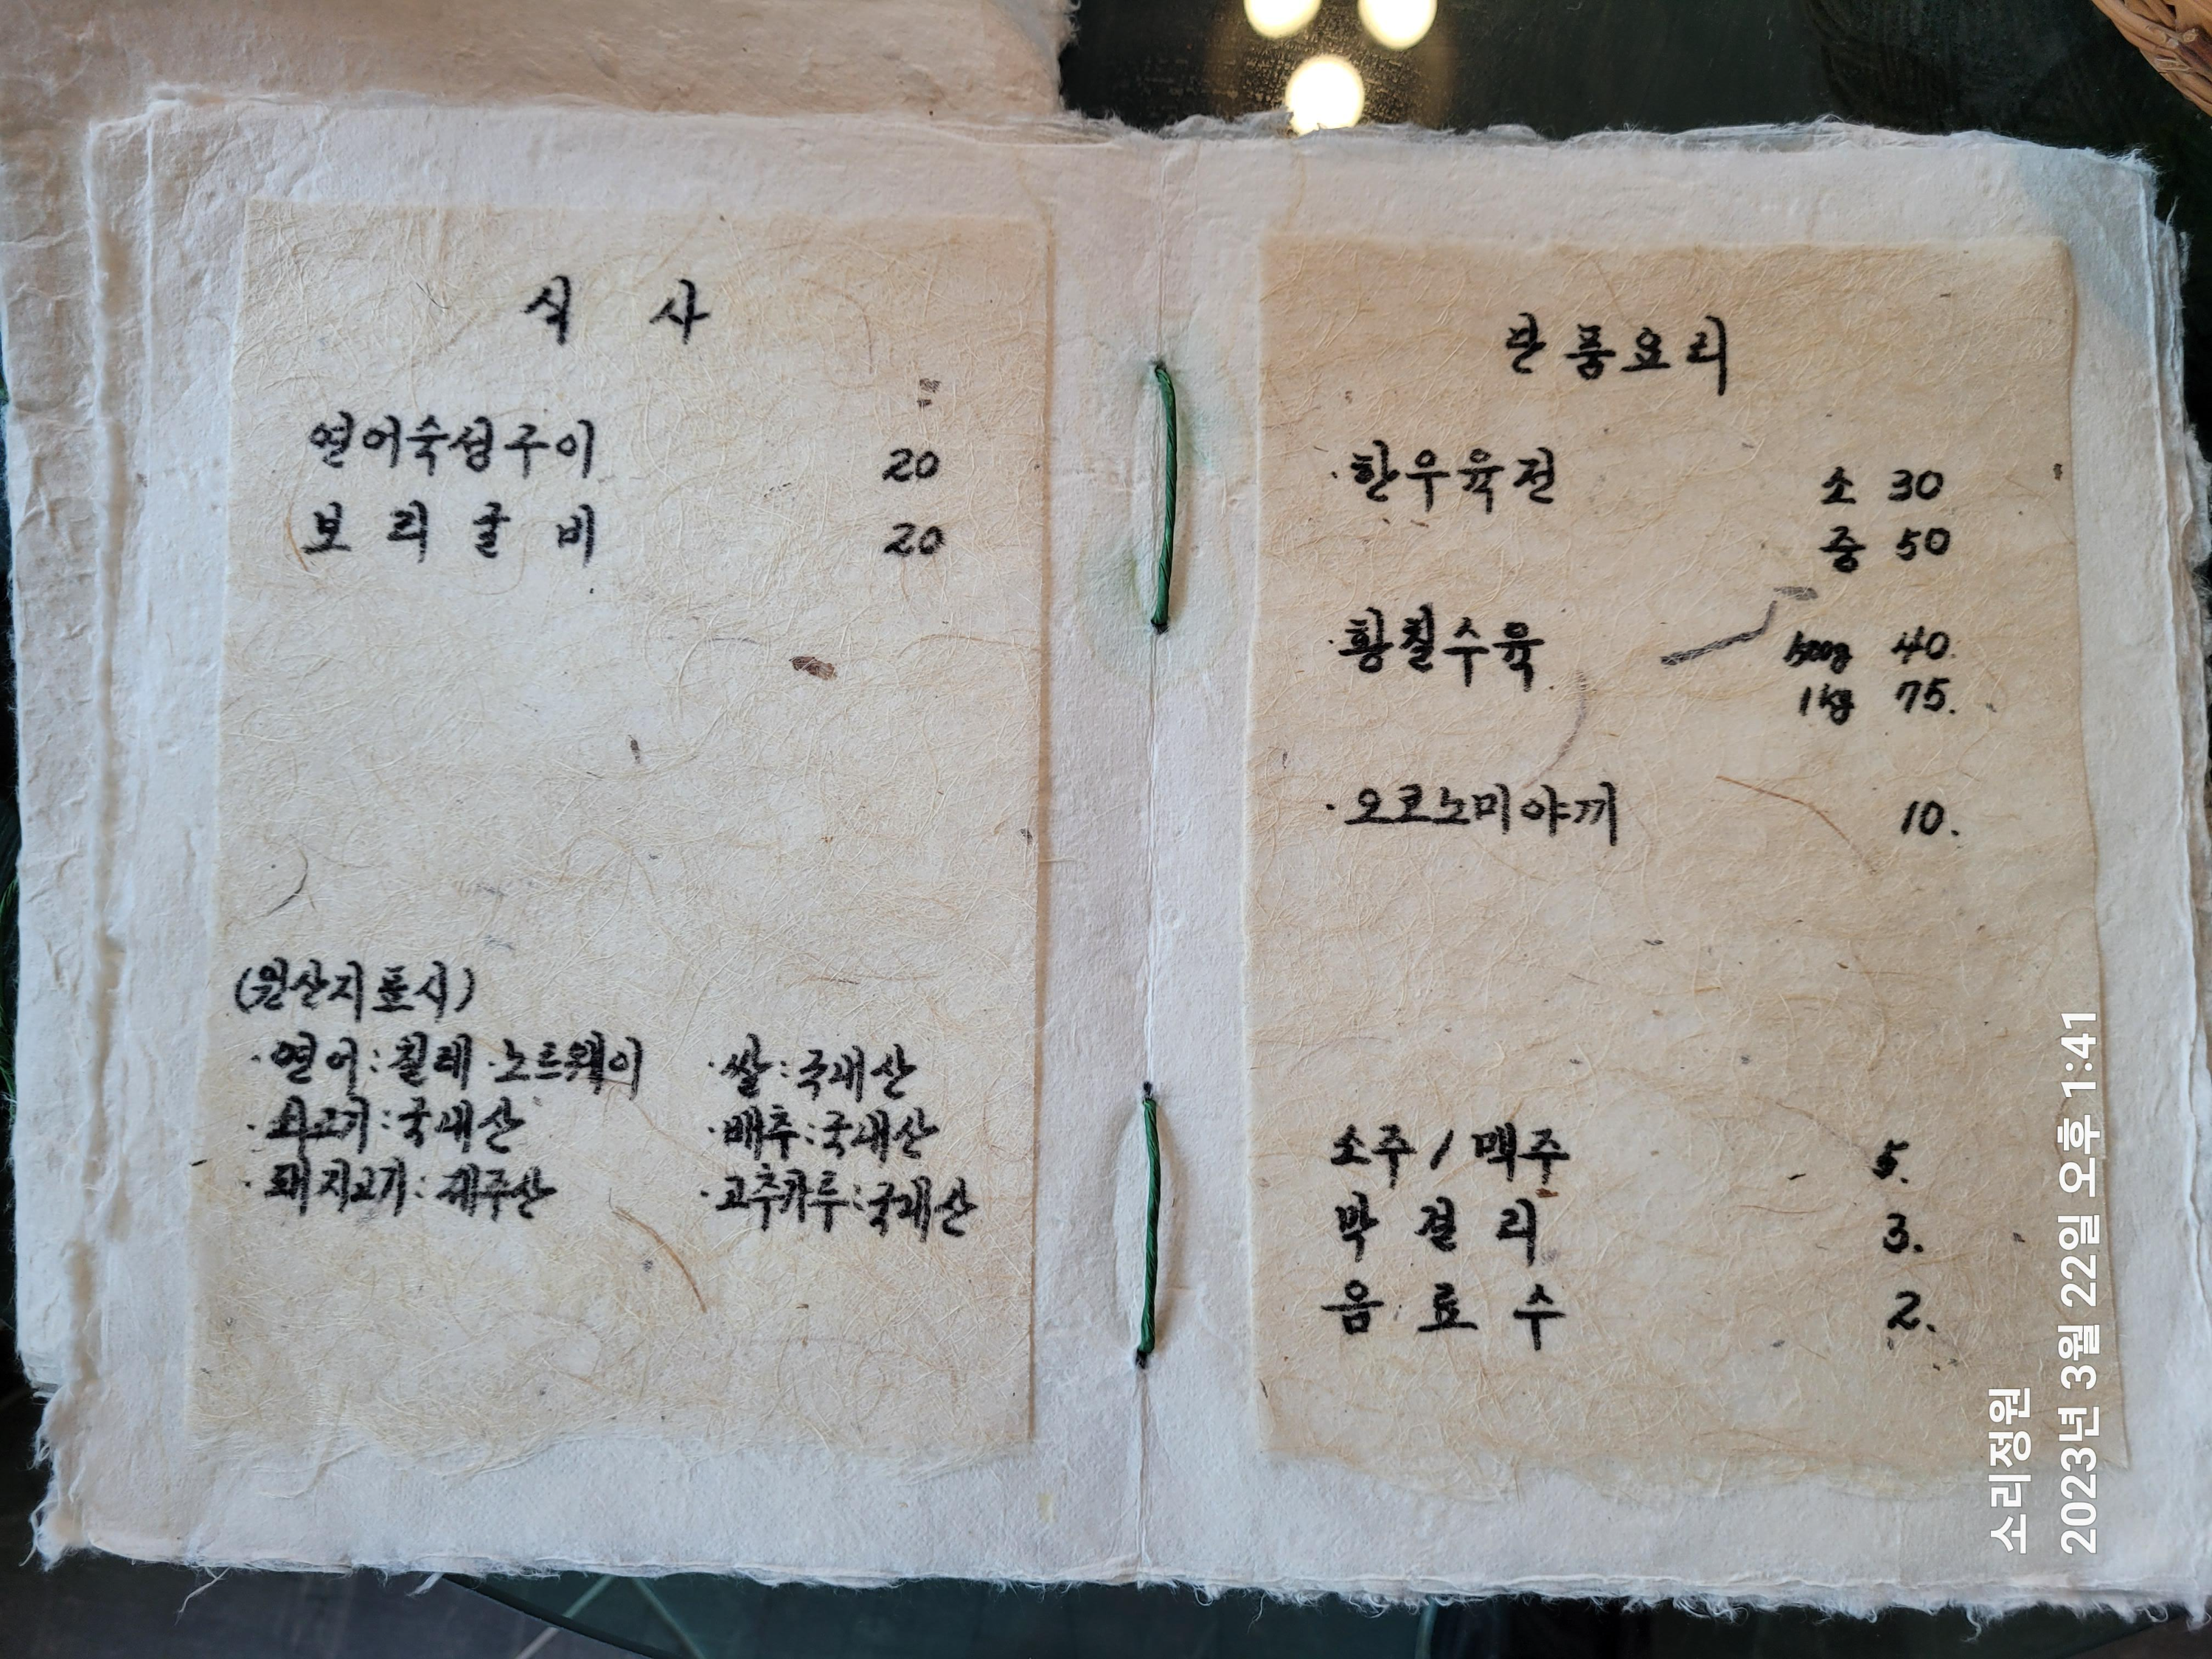 식 사
연어숙성구이 20
보리굴비 20
(원산지표시)
·연어:칠레·노르웨이
·쇠고기:국내산
·돼지고기:제주산
·쌀:국내산
·배추:국내산
·고추카루:국내산
단품요리
·한우육전 소 30
중 50
·황칠수육 500g 40.
1kg 75.
·오코노미야끼 10.
소주/맥주 5.
막걸리 3.
음료수 2.
소리정원
2023년 3월 22일 오후 1:41